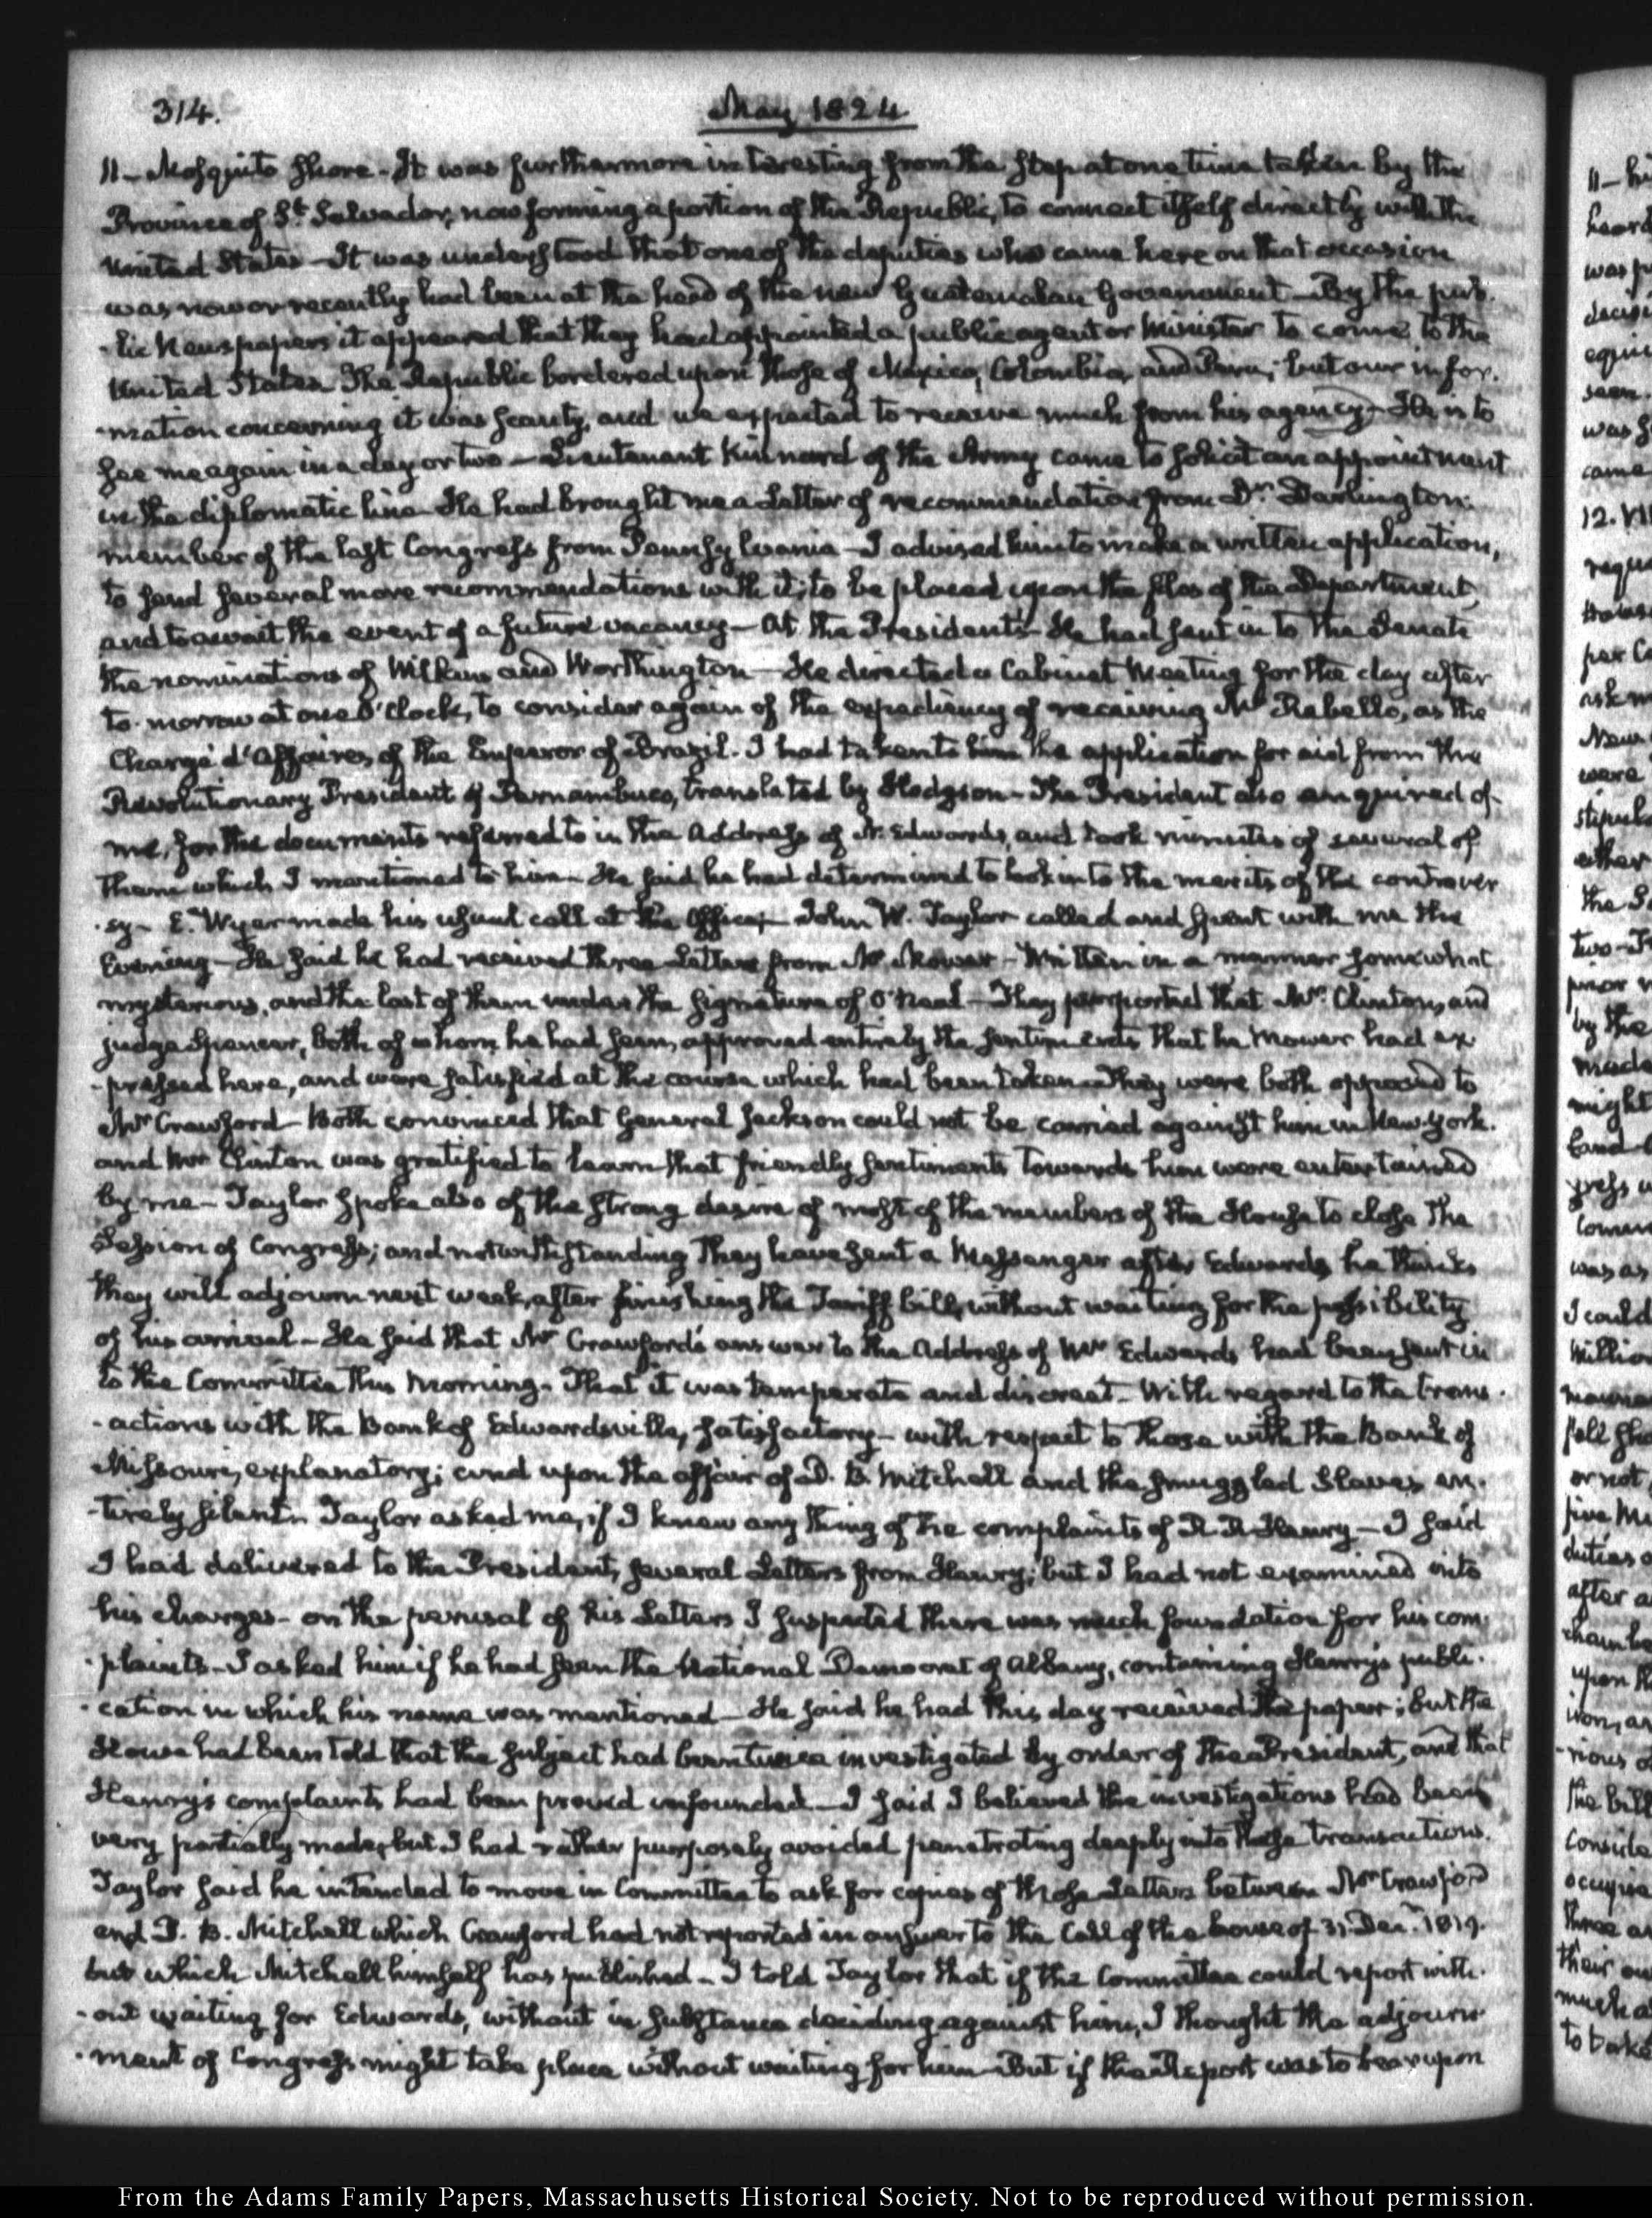 314.
May 1824
11 - Mosquito Shore - It was furthermore interesting from the step at one time taken by the
Province of St. Salvador, now forming a portion of the Republic, to connect itself directly with the
United States - It was understood that one of the deputies who came here on that occasion
was now or recently had been at the head of the new Guatemalan Government - By the pub-
-lic Newspapers it appeared that they had appointed a public agent or Minister to come to the
United States. The Republic bordered upon those of Mexico, Colombia, and Peru; but our infor-
-mation concerning it was scanty, and we expected to receive much from his agency - He is to
see me again in a day or two - Lieutenant Kinnard of the Army came to solicit an appointment
in the diplomatic line. He had brought me a Letter of recommendation from Dr. Darlington
member of the last Congress from Pennsylvania - I advised him to make a written application,
to send several more recommendations with it; to be placed upon the files of the Department,
and to await the event of a future vacancy - At the President's - He had sent in to the Senate
the nominations of Wilkins and Worthington - He directed a Cabinet Meeting for the day after
to-morrow at one O'Clock, to consider again of the expediency of receiving Mr Rebello, as the
Chargé d'Affaires of the Emperor of Brazil. I had taken to him the application for aid from the
Revolutionary President of Pernambuco, translated by Hodgson - The President also enquired of
me, for the documents referred to in the Address of N. Edwards, and took minutes of several of
them which I mentioned to him - He said he had determined to look into the merits of the controver
-sy - E. Wyer made his usual call at the Office - John W. Taylor called and spent with me the
Evening - He said he had received three Letters from Mr Mower - Written in a manner somewhat
mysterious, and the last of them under the signature of O'Neal - They purported that Mr. Clinton, and
judge Spencer, both of whom he had seen, approved entirely the sentiments that he Mower had ex
-pressed here, and were satisfied at the course which had been taken - They were both opposed to
Mr Crawford - Both convinced that General Jackson could not be carried against him in New-York.
and Mr Clinton was gratified to learn that friendly sentiments towards him were entertained
by me - Taylor spoke also of the strong desire of most of the members of the House to close the
Session of Congress; and notwithstanding they have sent a Messenger after Edwards, he thinks
they will adjourn next week, after finishing the Tariff bill, without waiting for the possibility
of his arrival - He said that Mr Crawford's answer to the Address of Mr Edwards had been sent in
to the Committee this Morning. That it was temperate and discreet - With regard to the trans-
-actions with the Bank of Edwardsville, satisfactory - with respect to those with the Bank of
Missouri, explanatory; and upon the affair of D. B. Mitchell and the smuggled Slaves en-
-tirely silent - Taylor asked me, if I knew any thing of the complaints of R. R. Henry - I said
I had delivered to the President, several Letters from Henry; but I had not examined into
his charges - on the perusal of his Letters I suspected there was much foundation for his com-
-plaints - I asked him if he had seen the National Democrat of Albany, containing Henry's publi-
-cation in which his name was mentioned - He said he had this day received the paper; but the
House had been told that the subject had been twice investigated by order of the President, and that
Henry's complaints had been proved unfounded - I said I believed the investigations had been
very partially made; but I had rather purposely avoided penetrating deeply into those transactions.
Taylor said he intended to move in Committee to ask for copies of those Letters between Mr Crawford
and D. B. Mitchell which Crawford had not reported in answer to the Call of the house of 31. Decr. 1819.
but which Mitchell himself has published - I told Taylor that if the Committee could report with-
-out waiting for Edwards, without in substance deciding against him, I thought the adjourn-
-ment of Congress might take place without waiting for him - But if the Report was to bear upon
From the Adams Family Papers, Massachusetts Historical Society. Not to be reproduced without permission.